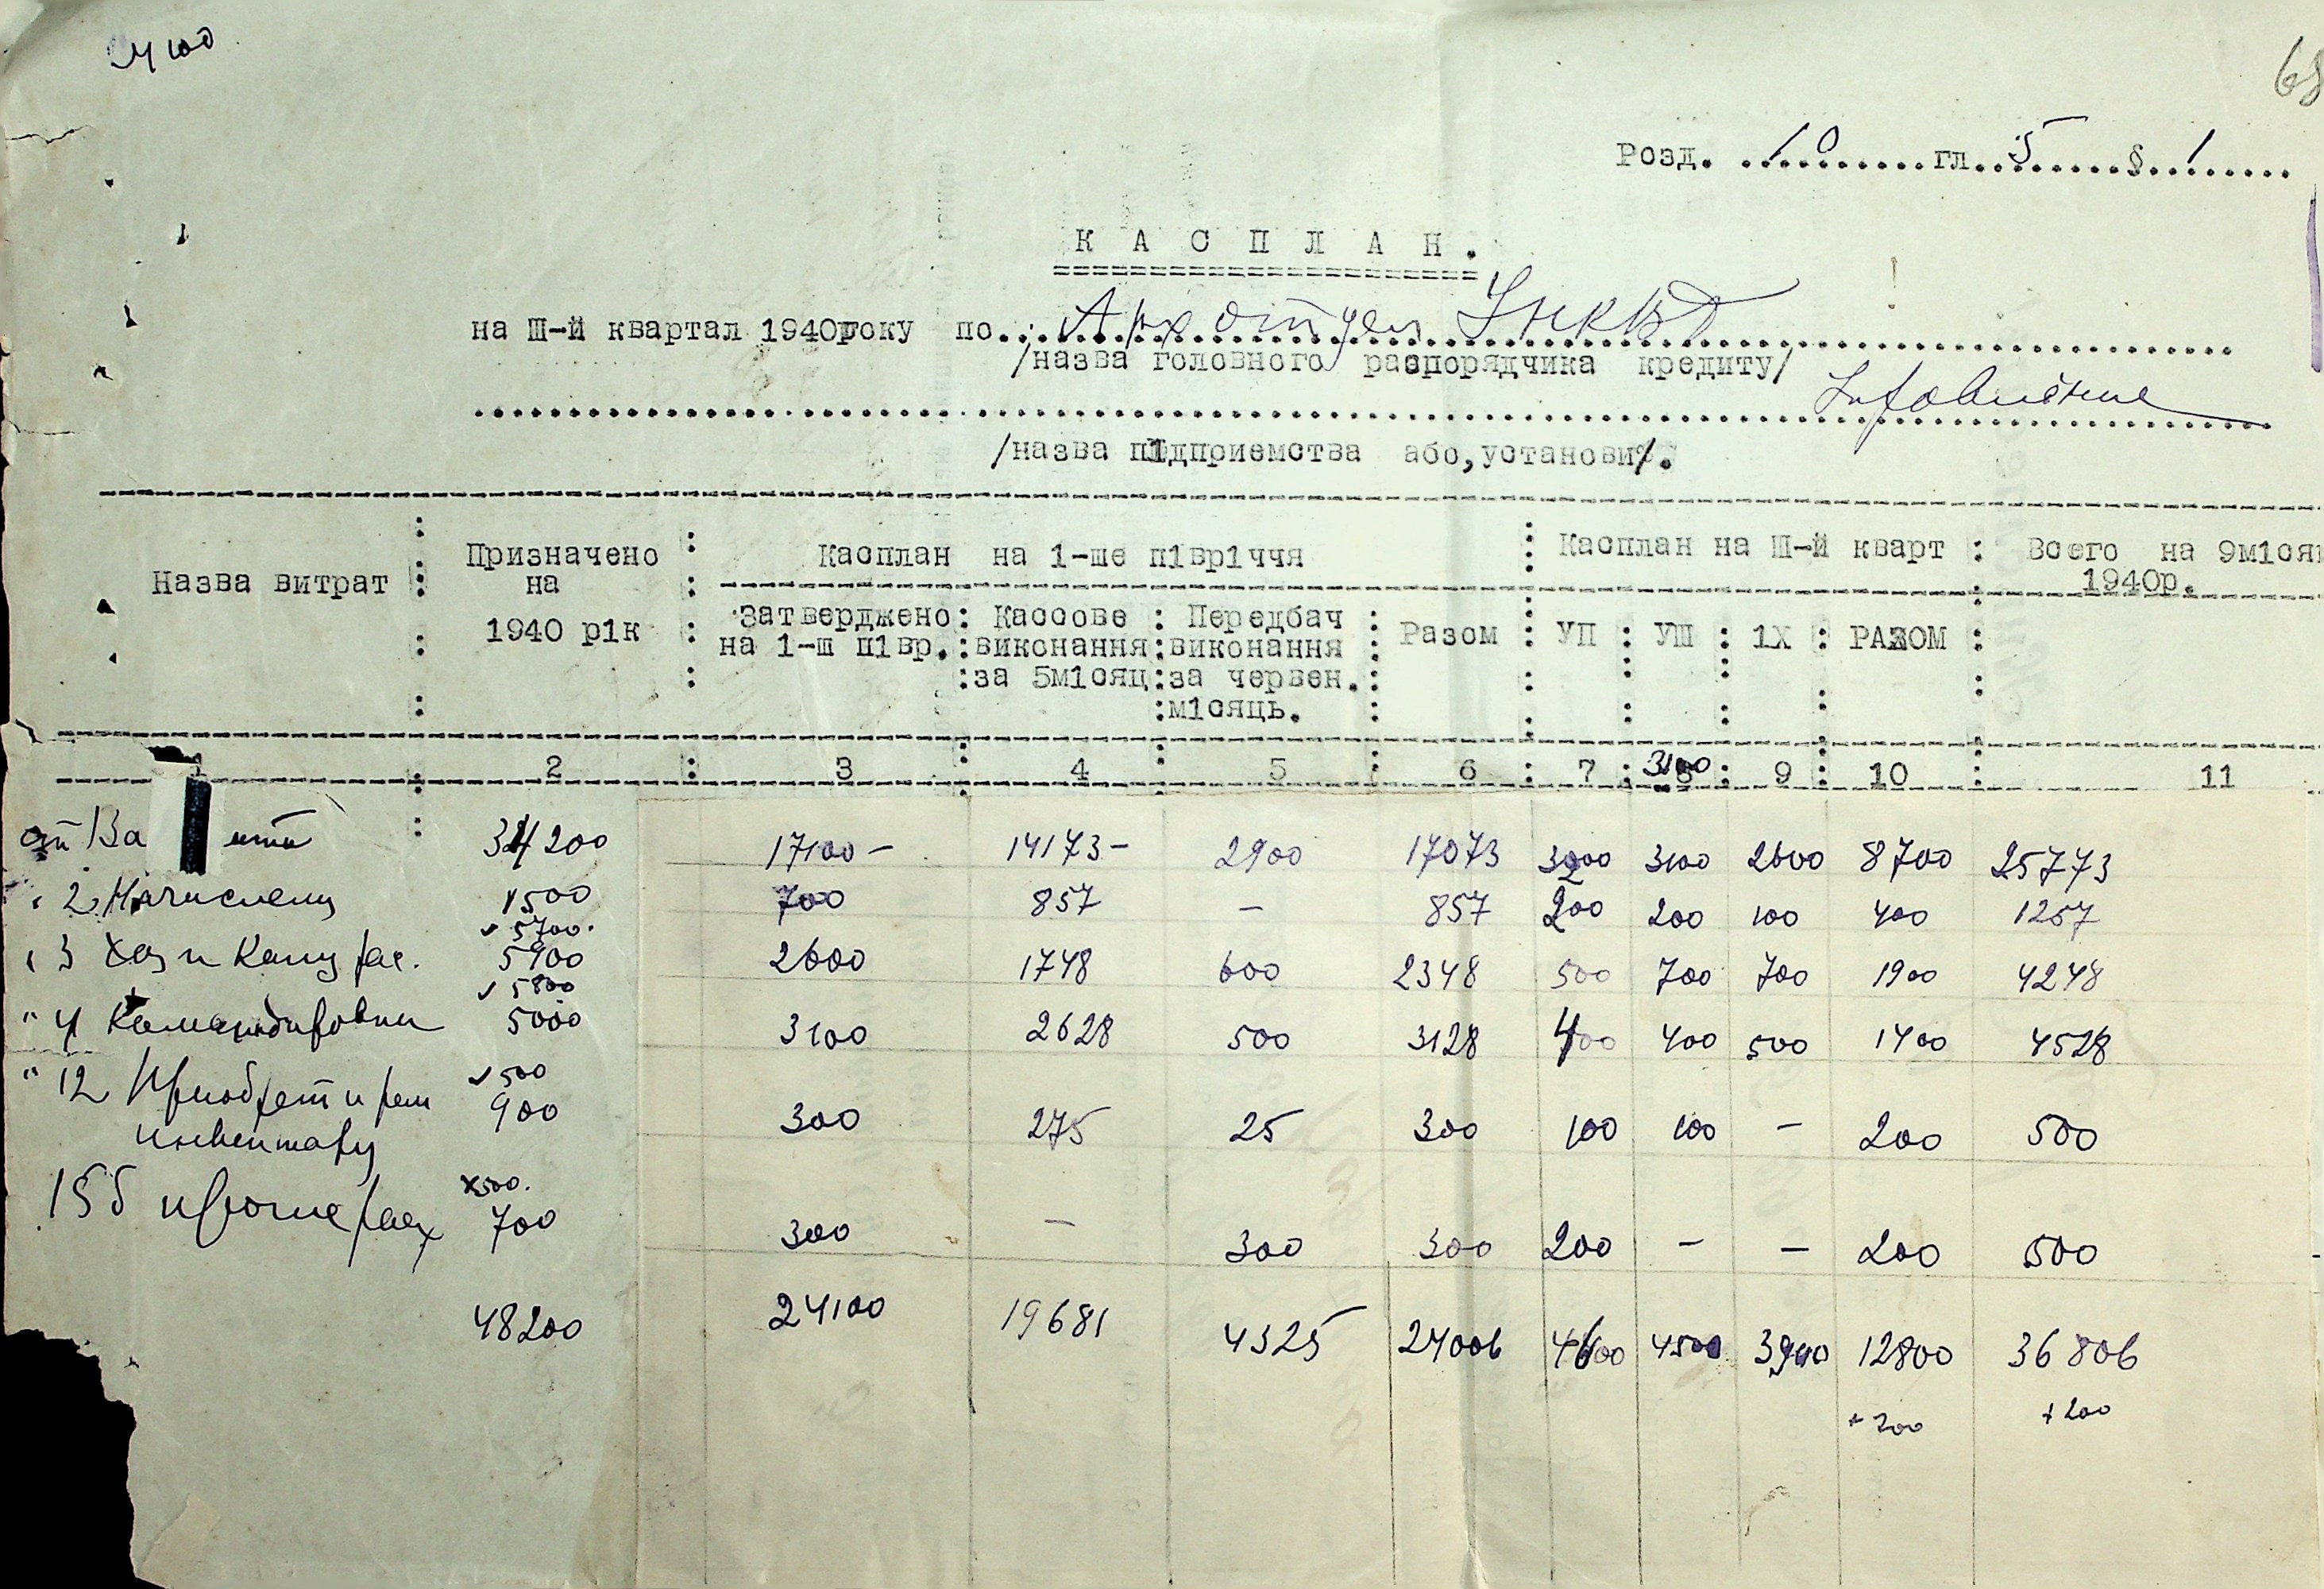 24100
68
Розд. ..10.......... гл..5......§..1......
К А С П Л А Н .
на Ш-й квартал 1940року по...Арх отдел УНКВД
/назва головного распорядчика кредиту/
/назва п1дприемства або,установи/.
Назва витрат : Призначено на 1940 р1к : Касплан на 1-ше п1вр1ччя : Касплан на Ш-й кварт : Всего на 9м1сяц 1940р.
Затверджено на 1-ш п1вр. : Кассове виконання за 5м1сяц : Передбач виконання за червен. м1сяць. : Разом : УП : УШ : 1Х : РАЗОМ :
1 : 2 : 3 : 4 : 5 : 6 : 7 : 8 : 9 : 10 : 11
3100
34200 17100- 14173- 2900 17073 3000 3100 2600 8700 25773
" 2 Начислени 1500 700 857 - 857 200 200 100 400 1257
✓ 5700.
" 3 Хоз и Канц рас. 5900 2600 1748 600 2348 500 700 700 1900 4248
✓ 5800
" 4 Командировки 5000 3100 2628 500 3128 400 400 500 1400 4528
✓ 500
" 12 Приобрет и рем 900
инвентару 300 275 25 300 100 100 - 200 500
x500.
15б прочие расх 700 300 - 300 300 200 - - 200 500
48200 24100 19681 4325 24006 4600 4500 3900 12800 36806
+ 200 + 200